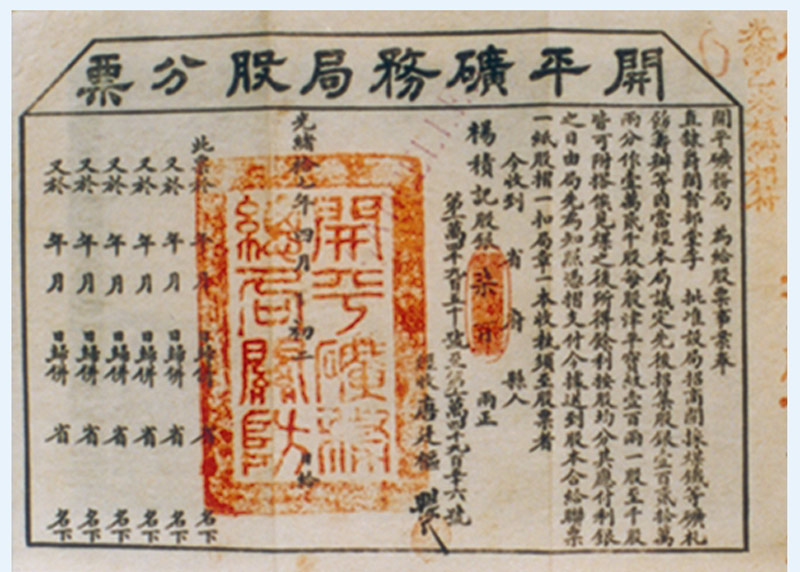 開平礦務局股分票
開平礦務局 為給股票事案奉
直隸爵閣督部堂李 批准設局招商開採煤鐵等礦札
飭籌辦等因當經本局議定先後招集股銀壹百貳拾萬
兩分作壹萬貳千股每股津平寶紋壹百兩一股至千股
皆可附搭俟見煤之後所得餘利按股均分其應付利銀
之日由局先為知照憑摺支付今據送到股本合給聯票
一紙股摺一扣局章一本收執須至股票者
今收到 省 府 縣人
楊積記股銀 柒百 兩正
第一萬四千九百五十號至第一萬四千九百六號
經收唐廷樞
光緒拾七年四月 初二 日給
此票於 年 月 日歸併 省 名下
又於 年 月 日歸併 省 名下
又於 年 月 日歸併 省 名下
又於 年 月 日歸併 省 名下
又於 年 月 日歸併 省 名下
開平礦務
總局關防